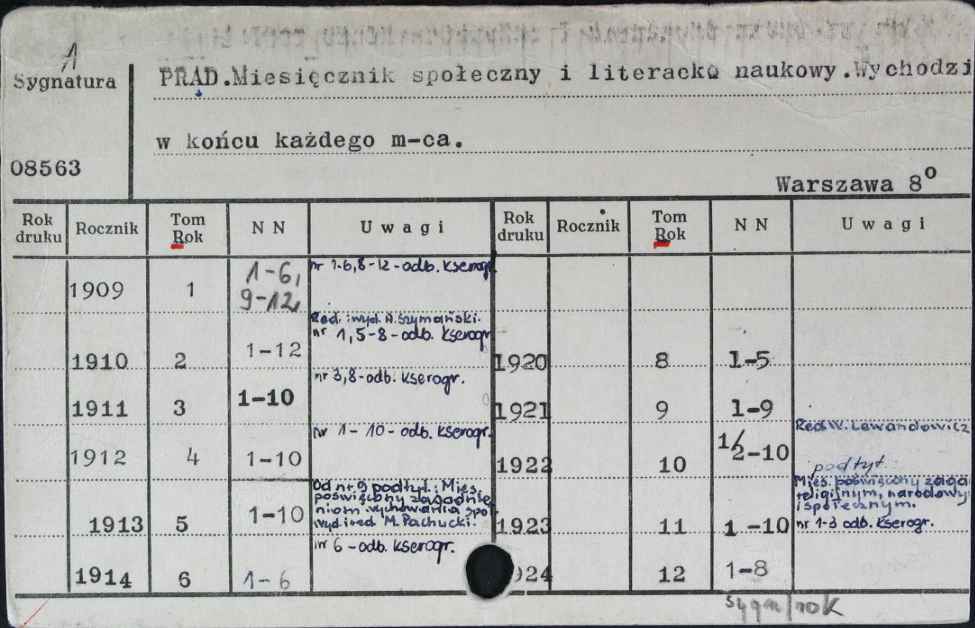 1
Sygnatura
PRĄD.Miesięcznik społeczny i literacko naukowy.Wychodzi
w końcu każdego m-ca.
08563
Warszawa 8o
Rok druku Rocznik Tom Rok N N Uwagi Rok druku Rocznik Tom Rok N N Uwagi
nr 1-6, 8-12 - odb. kserogr.
1909 1 1-6, 9-12,
Red. i wyd. A. Szymański.
nr 1, 5-8 - odb. kserogr.
1910 2 1-12 1920 8 1-5
nr 3,8 - odb. kserogr.
1911 3 1-10 1921 9 1-9
nr 1-10 - odb. kserogr.
Red. W. Lewandowicz
1912 4 1-10 1922 10 1/2-10
podtyt.
Od nr 9 podtyt.: Mies.
poświęcony zagadnie
niom wychowania spo
wyd. i red. M. Pachucki.
1913 5 1-10 1923 11 1-10
Mies. poświęcony zaga
religijnym, narodowy
i społecznym.
nr 1-3 odb. kserogr.
nr 6 - odb. kserogr.
1914 6 1-6 924 12 1-8
sygn/rok